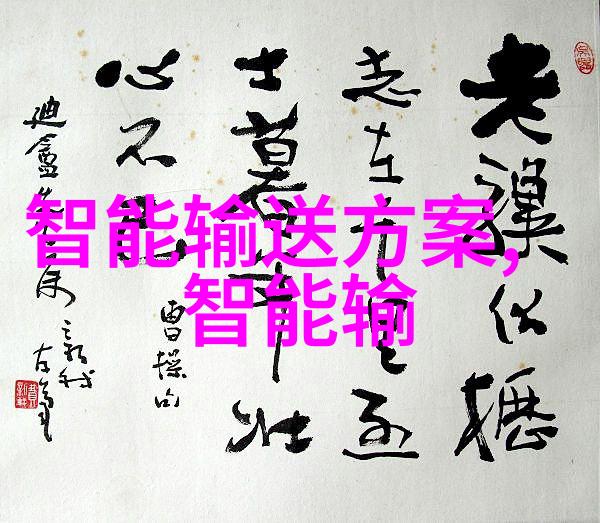 智能输送方案,
智能输
老驥伏櫪
志在千里烈
士暮年壮
心不已
曹操句